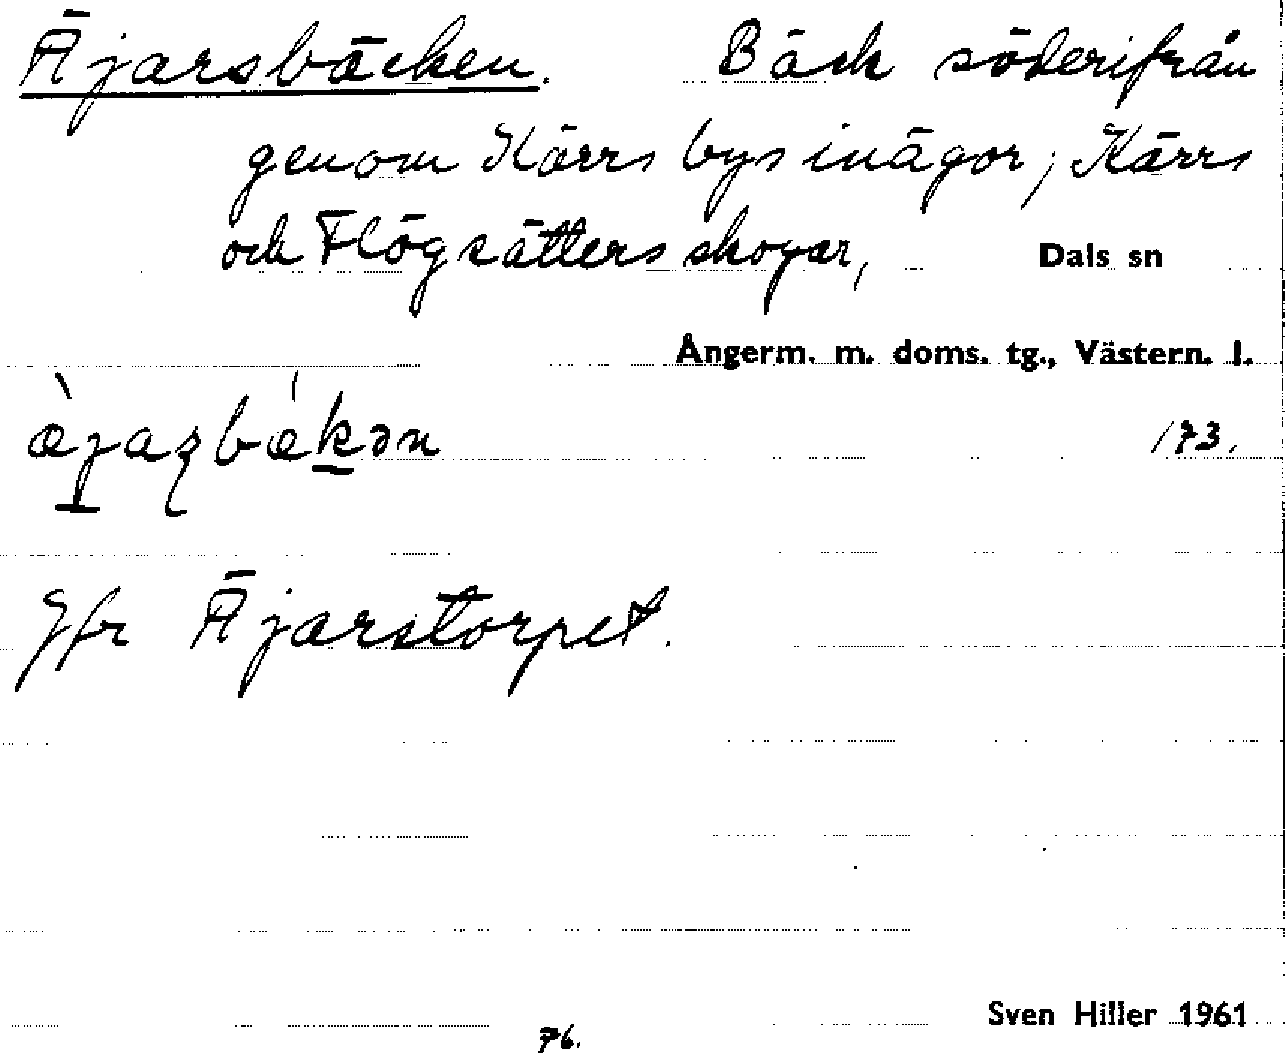 Äjarsbäcken. Bäck söderifrån
genom Kärrs bys inägor, Kärrs
och Flögsätters skogar, Dals sn
Ångerm. m. doms. tg., Västern. l.
173.
Jfr Äjarstorpet.
Sven Hiller 1961
76.